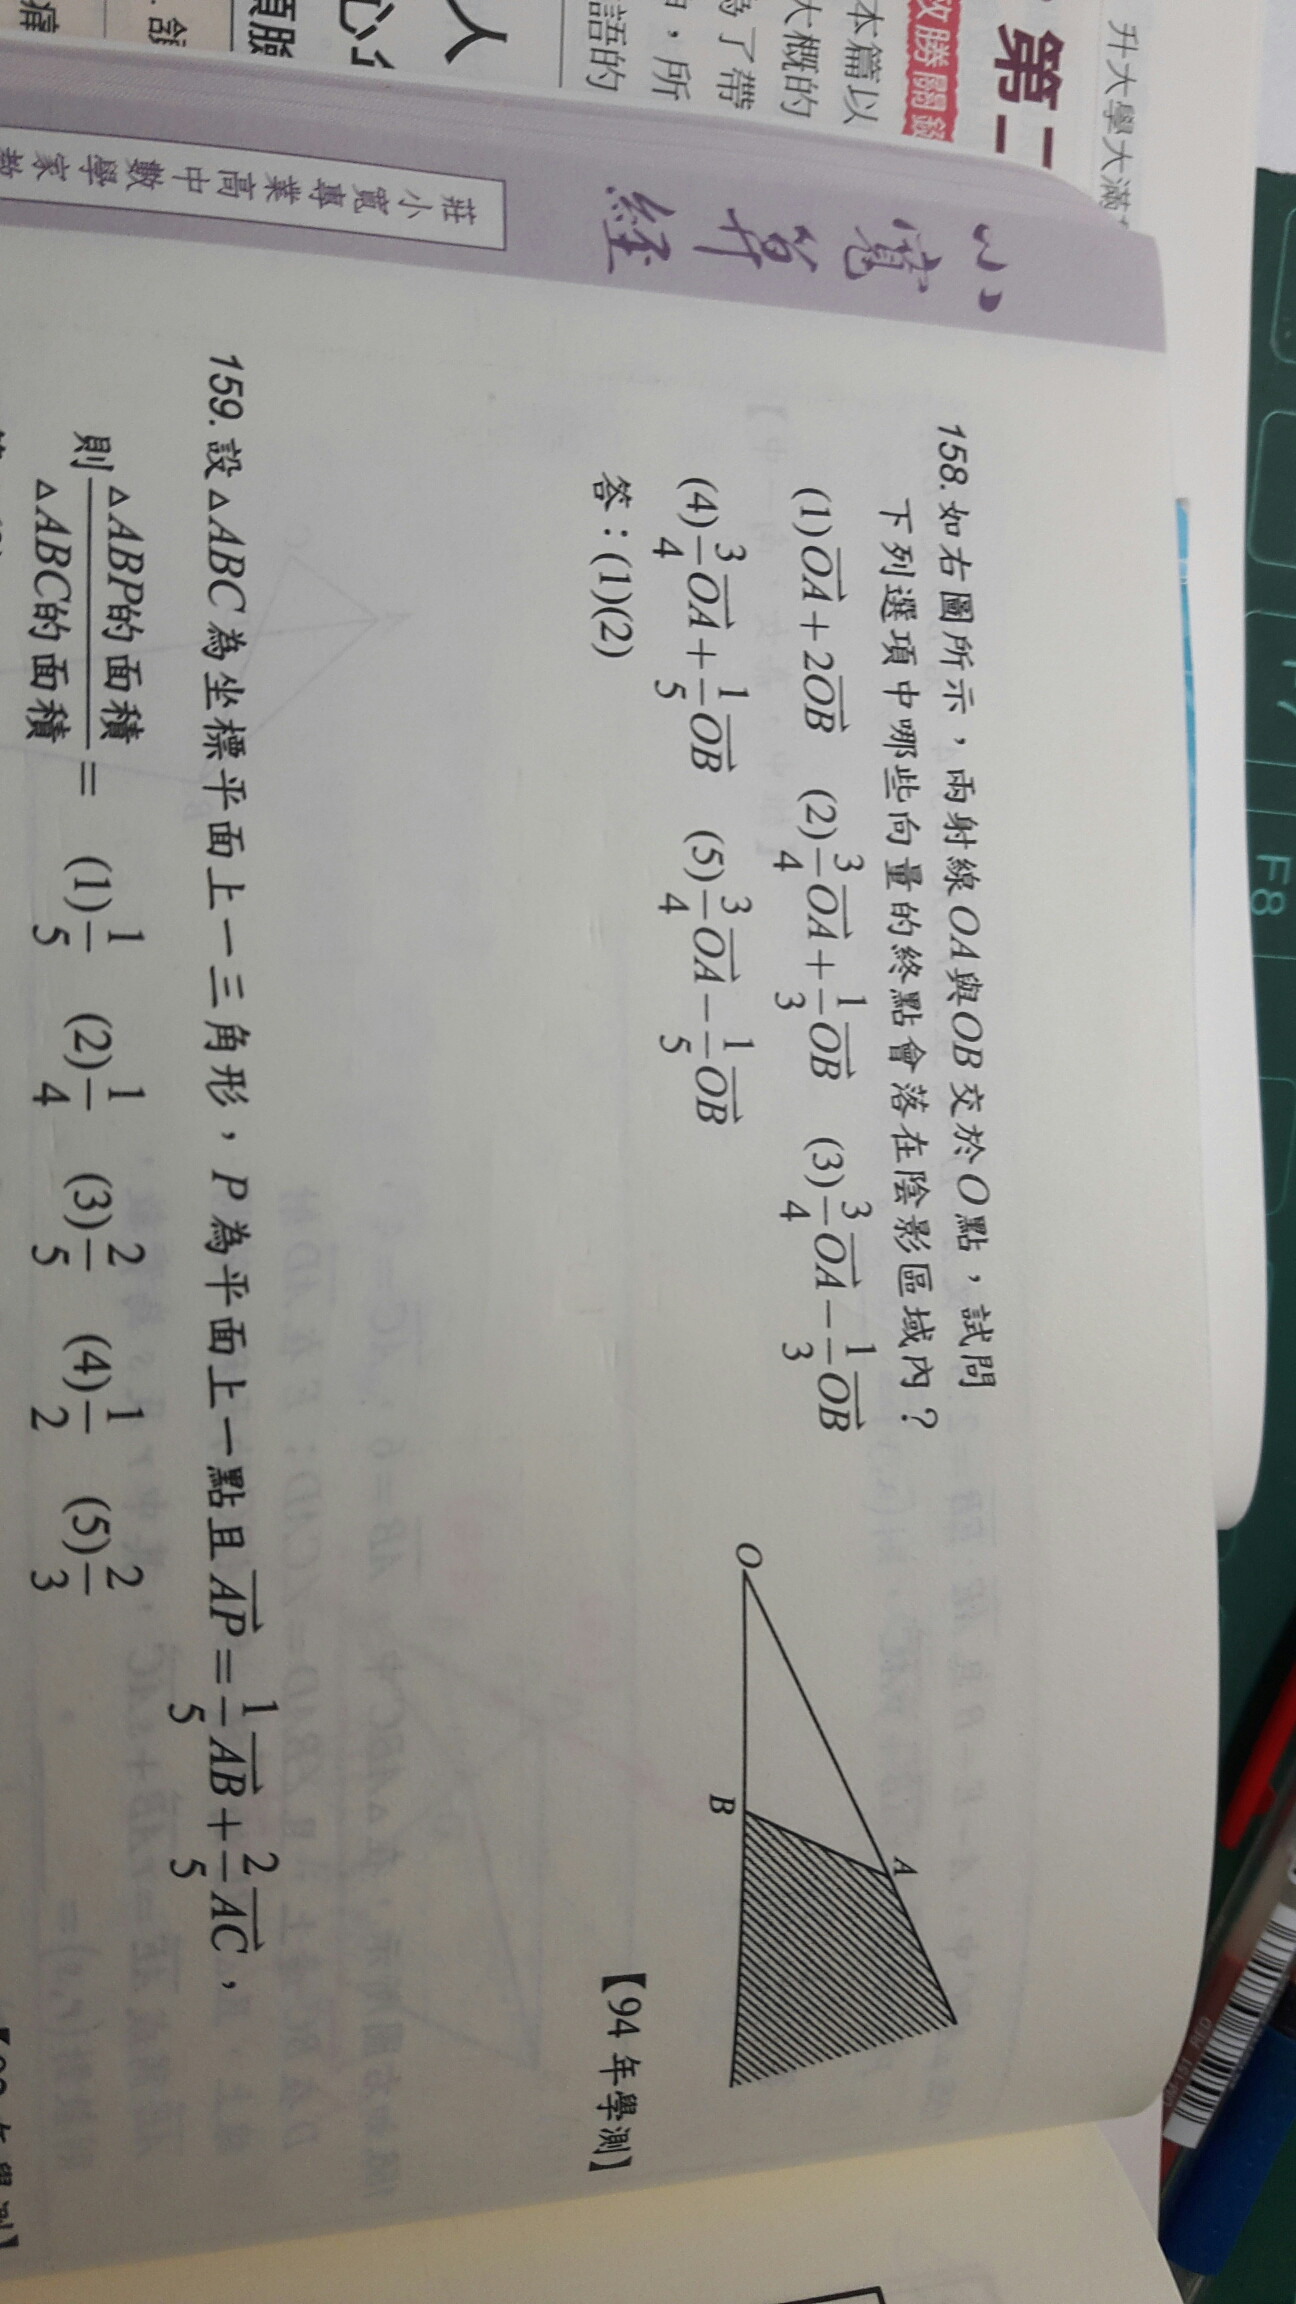 升大學大滿
第二
攻勝關鍵
本篇以
大概的
為了帶
，所
語的
人
心
頂
痛
小寬算經
莊小寬專業高中數學家教
158.如右圖所示，兩射線OA與OB交於O點，試問
下列選項中哪些向量的終點會落在陰影區域內？
(1)$\overrightarrow{OA}+2\overrightarrow{OB}$ (2)$\frac{3}{4}\overrightarrow{OA}+\frac{1}{3}\overrightarrow{OB}$ (3)$\frac{3}{4}\overrightarrow{OA}-\frac{1}{3}\overrightarrow{OB}$
(4)$\frac{3}{4}\overrightarrow{OA}+\frac{1}{5}\overrightarrow{OB}$ (5)$\frac{3}{4}\overrightarrow{OA}-\frac{1}{5}\overrightarrow{OB}$
答：(1)(2)
【94 年學測】
O
A
B
159.設△ABC為坐標平面上一三角形，P為平面上一點且$\overrightarrow{AP}=\frac{1}{5}\overrightarrow{AB}+\frac{2}{5}\overrightarrow{AC}$，
則$\frac{△ABP的面積}{△ABC的面積}$= (1)$\frac{1}{5}$ (2)$\frac{1}{4}$ (3)$\frac{2}{5}$ (4)$\frac{1}{2}$ (5)$\frac{2}{3}$
F7
F8
RED